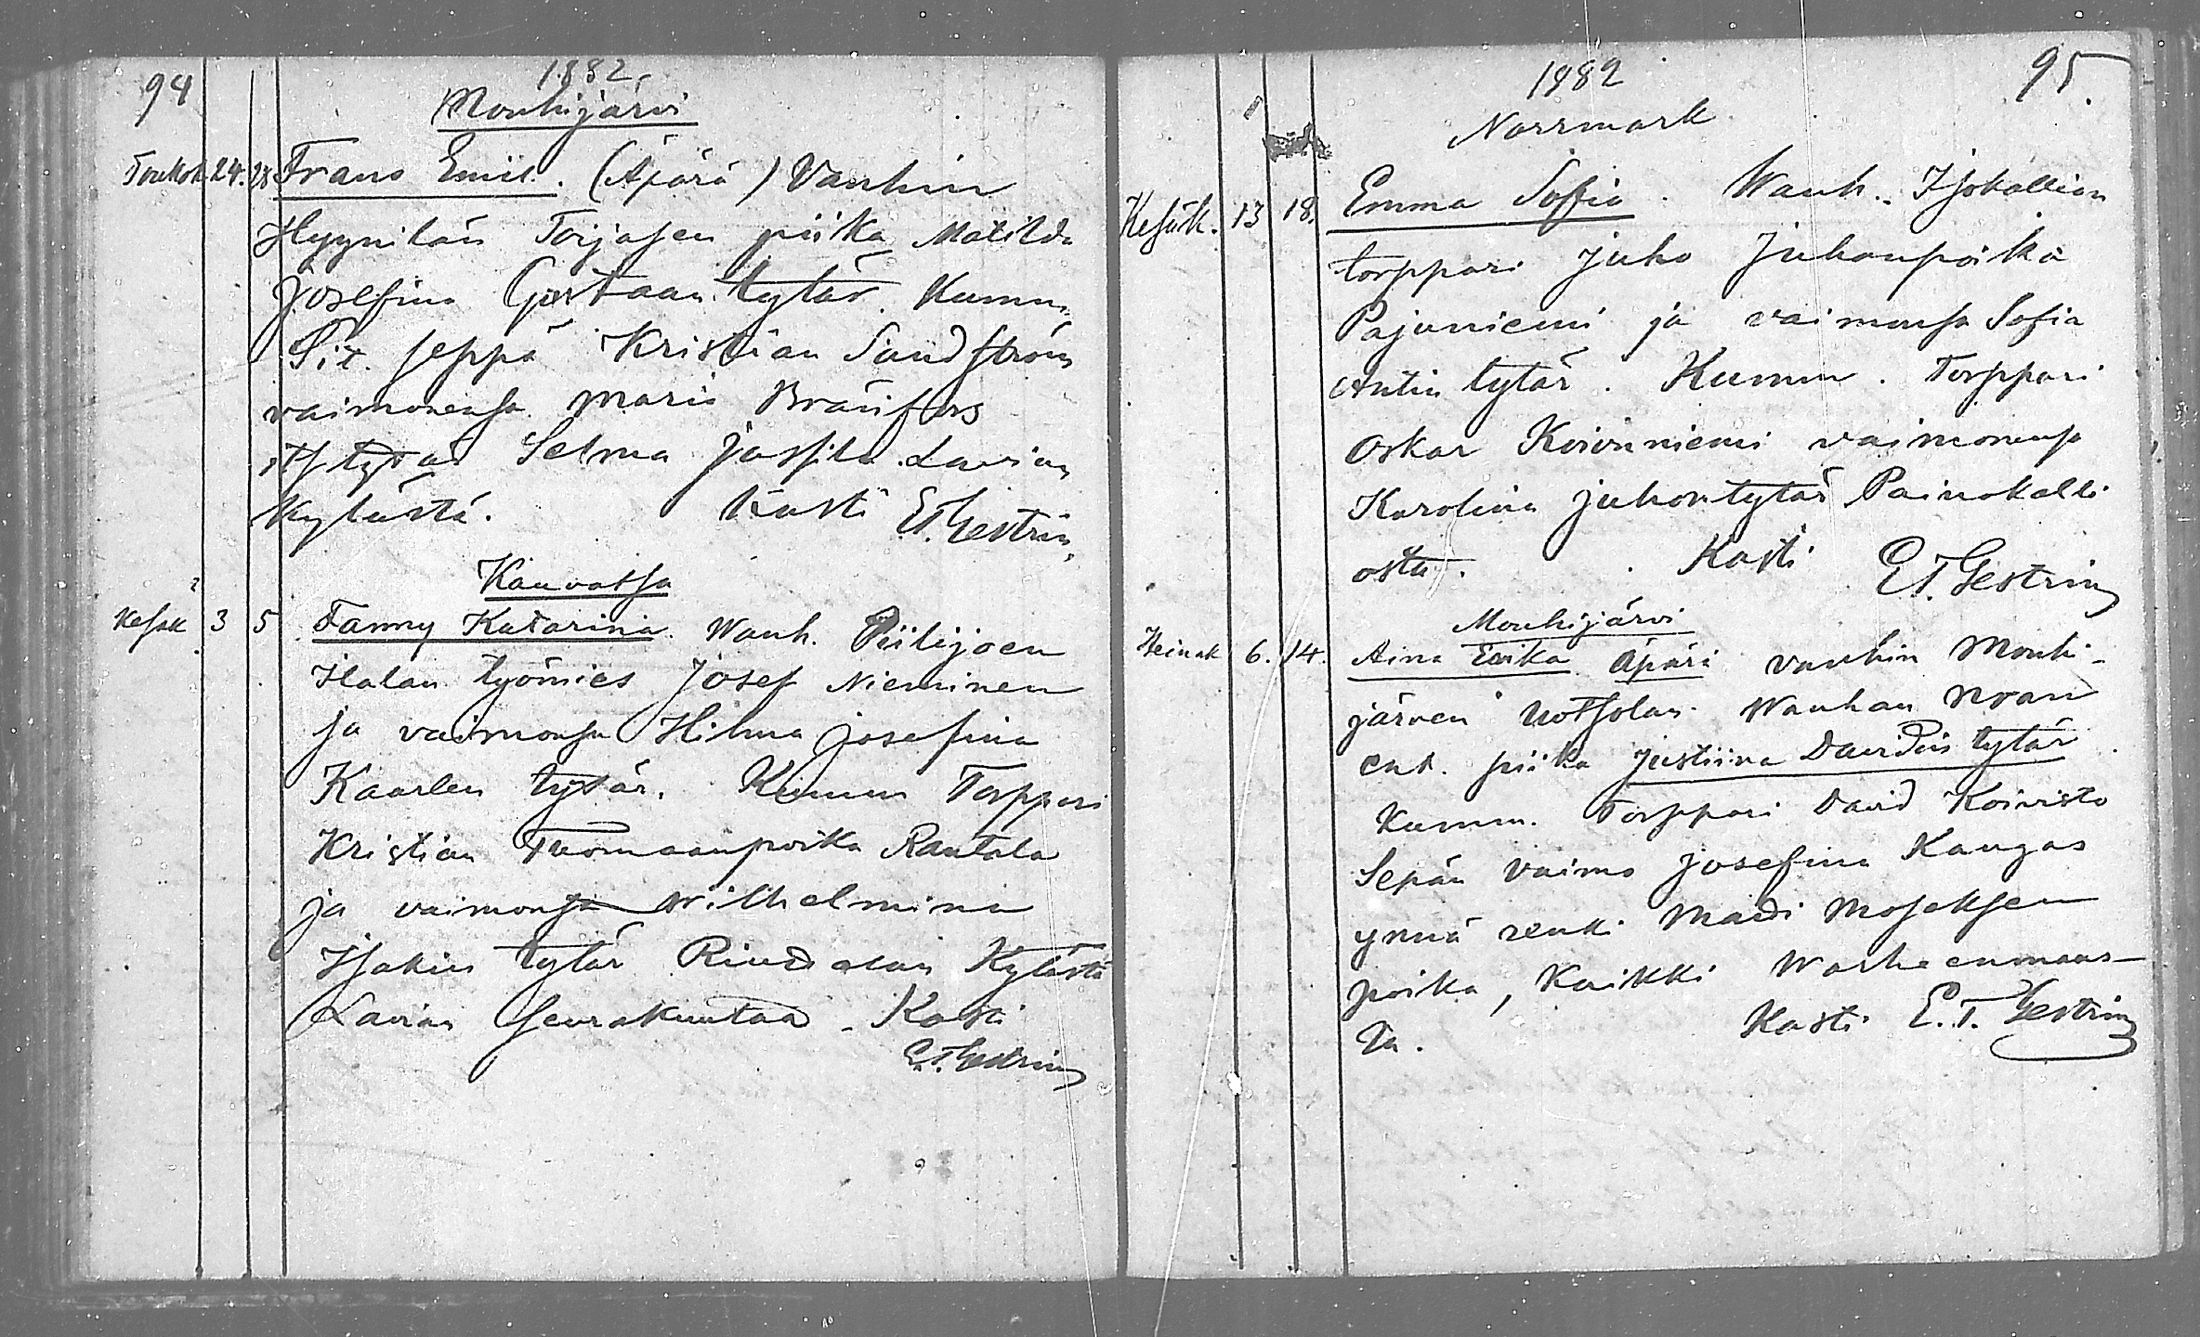 94
1882.
Mouhijärvi
Toukok. 24. 28 Frans Emiil. (Äpärä) Vanhin
Hyynilän Torjasen piika Matilda
Josefina Gustaan tytär. Kumm.
Sit. Seppä Kristian Sundström
vaimonensa Maria
Its tytär Selma Jussila Lavian
Kylästä. Kasti E.T. Gestrin
Kauvatsa
Kesäk 3 5 Fanny Katarina. Wanh. Piilijoen
Ilolan työmies Josef Nieminen
ja vaimonsa Hilma Josefina
Kaarlen tytär. Kumm Torppari
Kristian Tuomaanpoika Rantala
ja vaimonsa Wilhelmina
Isakin tytär Riudalan Kylästä
Lavian Seurakuntaa. Kasti
E.T. Gestrin
1882
95.
Norrmark
Kesäk. 13 18. Emma Sofia. Wanh. Isokallion
torppari Juho Juhanpoika
Pajuniemi ja vaimonsa Sofia
Antin tytär. Kumm. Torppari
Oskar Koivuniemi vaimonensa
Karolina Juhontytär Painokalli
osta. Kasti E.T. Gestrin
Mouhijärvi
Heinäk 6. 14. Aina Erika Äpärä vanhin Mouhi-
järven Uotsolan Wanhan
ent. piika Justiina Davidin tytär
Kumm. Torppari David Koivisto
Sepän vaimo Josefina Kangas
ynnä renki Matti Moseksen
poika, Kaikki Warheenmaas-
ta. Kasti E.T. Gestrin